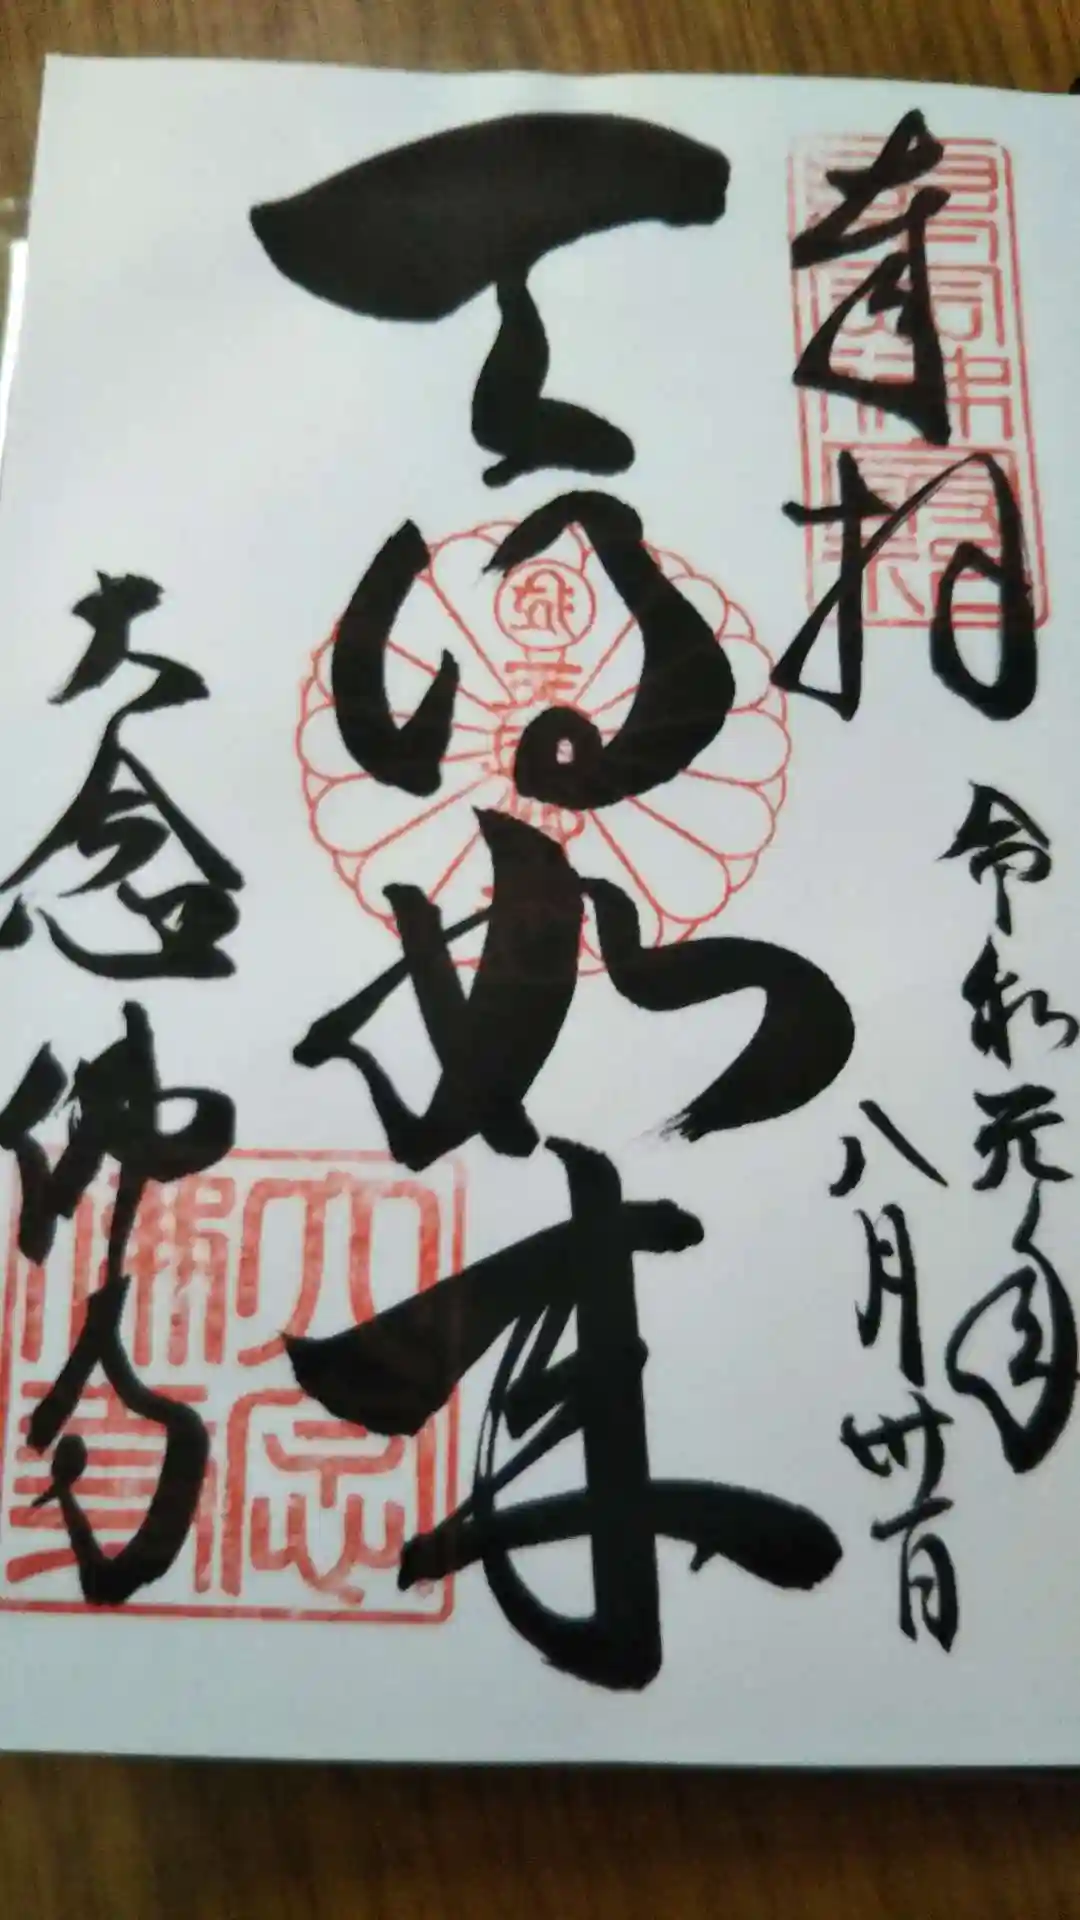 奉拝
令和元年
八月卅一日
天得如来
大念佛寺
大念
佛寺